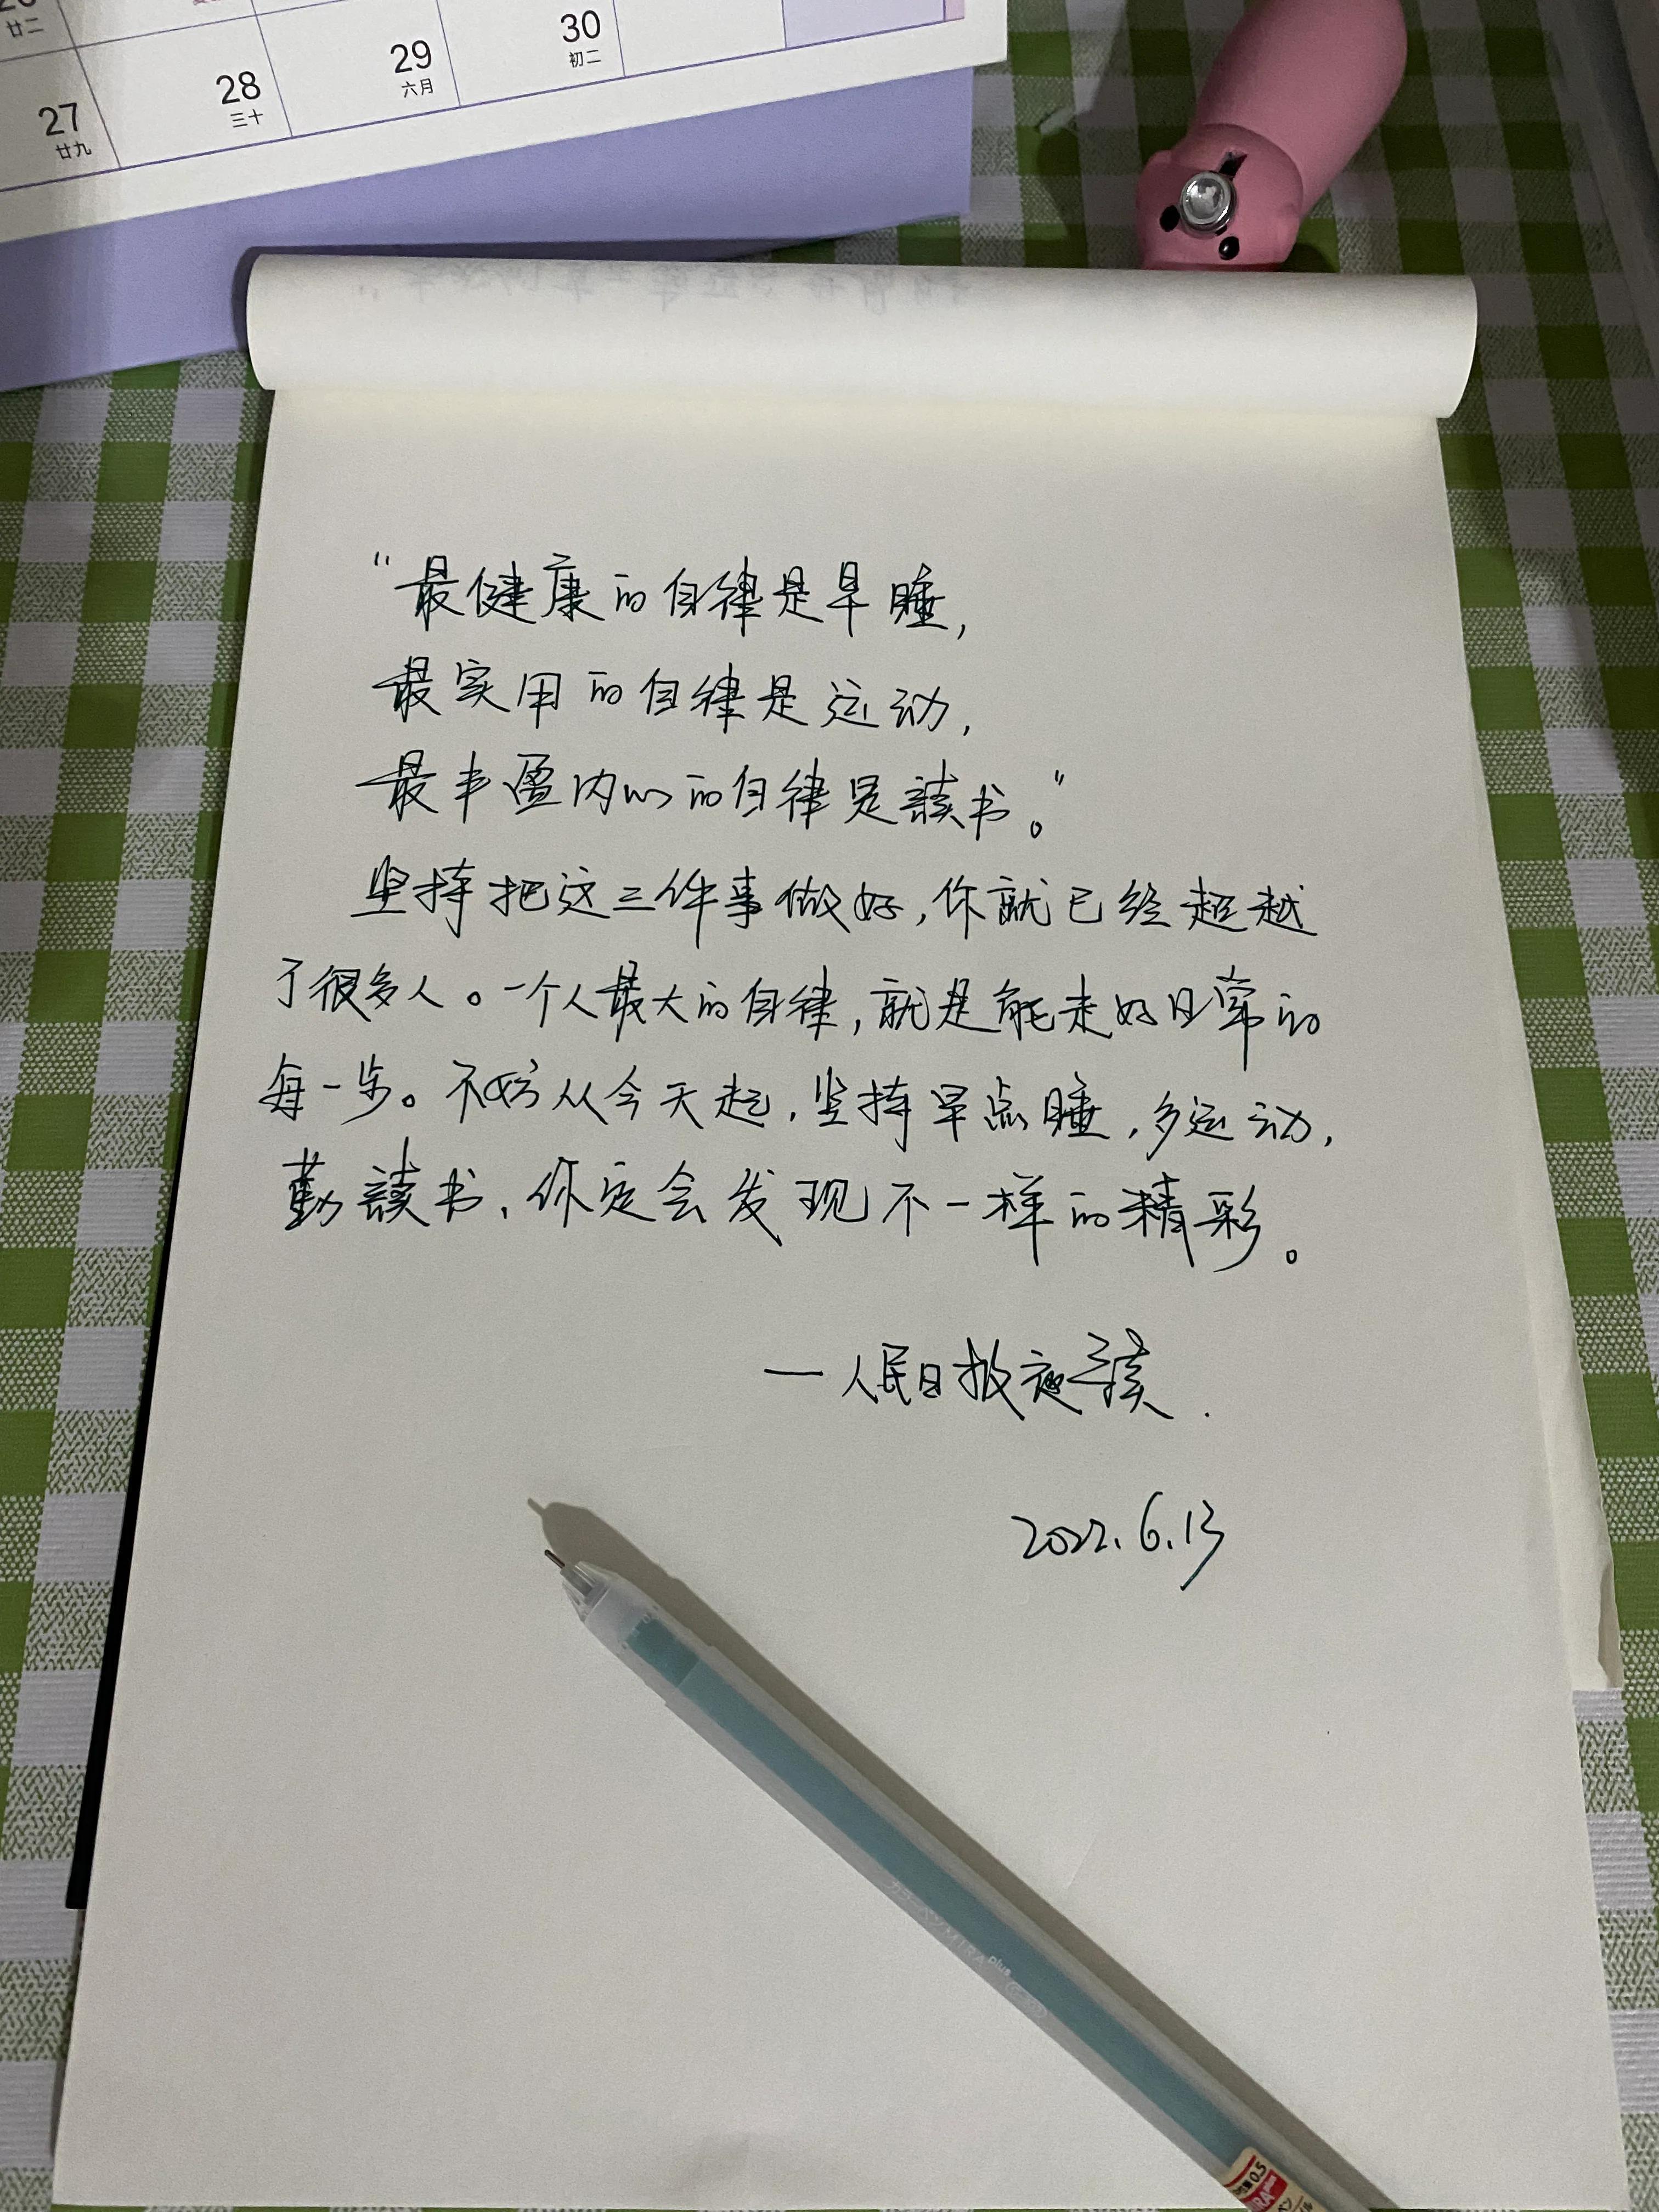 27
廿九
28
三十
29
六月
30
初二
廿二
“最健康的自律是早睡,
最实用的自律是运动,
最丰盈内心的自律是读书。”
坚持把这三件事做好,你就已经超越
了很多人。一个人最大的自律,就是能走好日常的
每一步。不妨从今天起,坚持早点睡,多运动,
勤读书,你定会发现不一样的精彩。
—人民日报夜读.
2022.6.13
MIRA plus
0.5